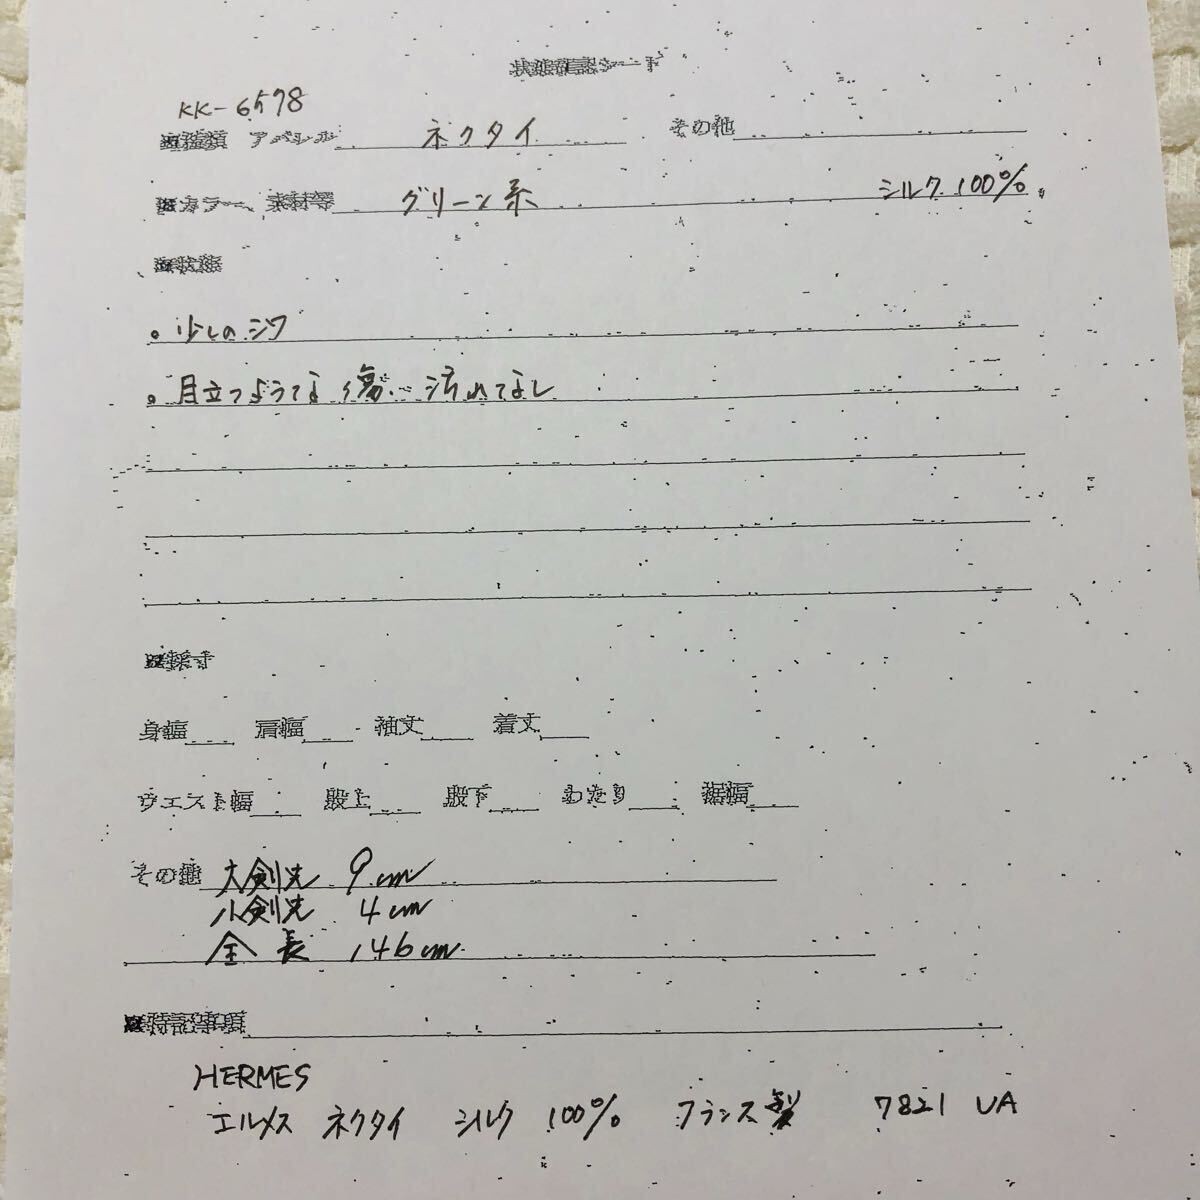 状態確認シート
KK-6578
※種類 アパレル ネクタイ その他
※カラー、素材等 グリーン系 シルク 100%
※状態
。少しのシワ
。目立つようてな傷、汚れてなし
※採寸
身幅 肩幅 袖丈 着丈
ウエスト幅 股上 股下 わたり 裾幅
その他 大剣先 9cm
小剣先 4cm
全長 146cm
※特記事項
HERMES
エルメス ネクタイ シルク 100% フランス製 7821 UA